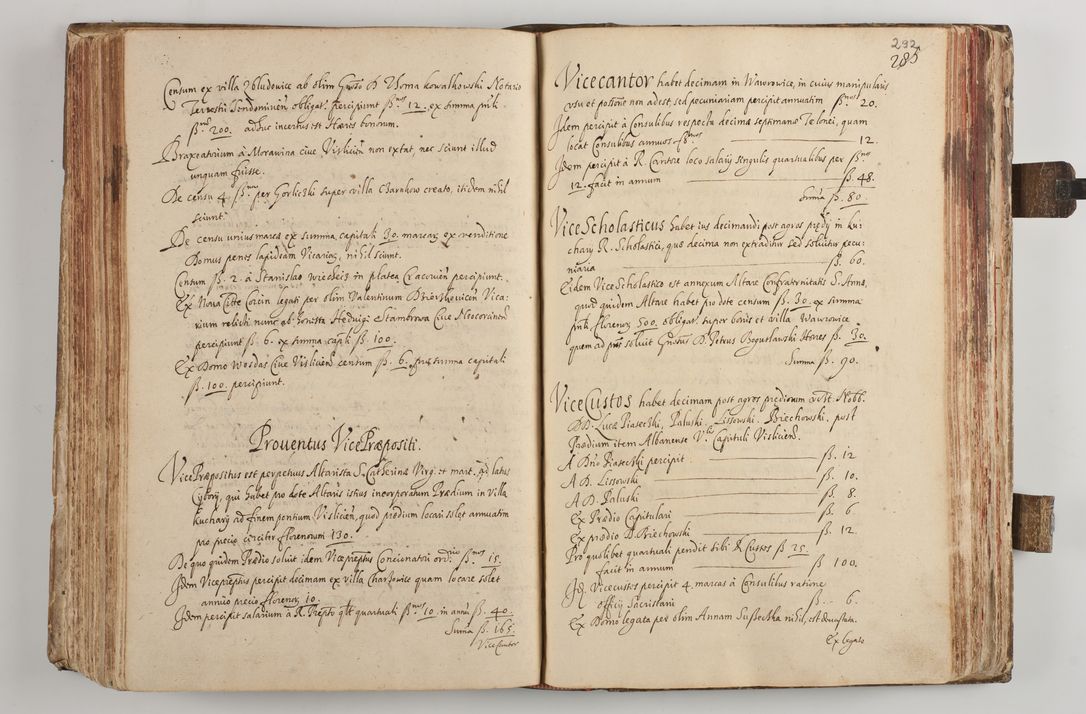 Censum ex villa Zbludowice ab olim Gnoso D Thoma Kowalkowski Notario
Terrestri Sendomirien obligat. percipiunt ß.nos 12. ex summa prli.
ß.nos 200. adhuc incertus est Hæres bonorum.
Braxeatorium à Morawina ciue Vislicien non extat, nec sciunt illud
unquam fuisse.
De censu 4. ß. per Gorliczki super villa Czarnkow creato, itidem nihil
sciunt.
De censu unius marcæ ex summa capitali 30. marcar, ex venditione
Domus penes lapideam Vicariar, nihil sciunt.
Censum ß. 2. à Stanislao in platea Cracovien percipiunt.
Ex Noua Citte legati per olim Valentinum Vica:
rium relicti nunc ab honesta Heduigi Stambrowa Ciue Neocorcinen
percipiunt ß. 6. ex summa capli ß. 100.
Ex Domo Wosdas Ciue Vislicien censum ß. 6. præ summa capitali
ß. 100. percipiunt.
Prouentus VicePræpositi.
VicePræpositus est perpetuus Altarista S. Catherinæ Virg. et mart. ad latus
Cybory, qui habet pro dote Altaris istius incorporatum Prædium in Villa
Kuchary ad finem pontium Vislicien, quod prædium locari solet annuatim
pro precio circiter florenorum 130.
De quo quidem Prædio soluit idem Vicepreptus Concionatori ord:rio ß.nos 15.
Idem Vicepreptus percipit decimam ex villa Charzowice quam locare solet
annuo precio florenor, 10.
Idem percipit salarium à R. Prepto qlt quartuali ß.nos 10. in annu ß. 40.
Suma ß. 165.
ViceCantor
292
285
Vicecantor habet decimam in Wawrowice, in cuius manipularis
usu et possone non adest, sed pecuniariam percipit annuatim ß.nos 20.
Idem percipit à Consulibus respectu decimæ septimanæ Telonei, quam
locat Consulibus annuos ß.nos 12.
Idem percipit à R. Cantore loco salary singulis quartualibus per ß.nos
12. facit in annum ß. 48.
Summa ß. 80.
ViceScholasticus habet ius decimandi post agros prædij in ku:
chary R. Scholastici, quæ decima non extraditur sed soluitur pecu:
niaria ß. 60.
Eidem ViceScholastico est annexum Altare Confraternitatis S. Annæ,
quod quidem Altare habet pro dote censum ß. 30. ex summa
prli florenor, 500. obligat. super bonis et villa Wawrowice
quem ad pns soluit Gnosus D. Petrus Boguslawski Hæres ß. 30.
Summa ß. 90.
ViceCustos habet decimam post agros prædiorum Nobb:
DD. Lucæ Piaseczki, Paluski, Lissowski, Briechowski, post
Prædium item Albanense V:lis Capituli Vislicien.
A Dno Piaseczki percipit ß. 12
A D. Lissowski ß. 10.
A D. Paluski ß. 8.
Ex Prædio Capitulari ß. 6
Ex prædio D. Briechowski ß. 12.
Pro quolibet quartuali pendit sibi R Custos ß 25.
facit in annum ß 100.
Id. Vicecustos percipit 4. marcas à Consulibus ratione
officij Sacristani ß. 6.
Ex Domo legata per olim Annam Sussecka nihil, est
Ex legato